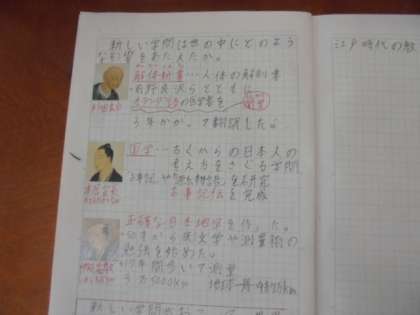 新しい学問は世の中にどのよう
な影響をあたえたか。
解体新書…人体の解剖書
前野良沢らとともに
オランダ語の医学書を
杉田玄白
3年かかって翻訳した。
国学…古くからの日本人の
考え方をさぐる学問
古事記や源氏物語を研究
本居宣長
古事記伝を完成
正確な日本地図を作った。
50才から天文学や測量術の
勉強を始めた。
伊能忠敬
17年間歩いて測量
3万5000km
地球一周
新しい学問が
江戸時代の